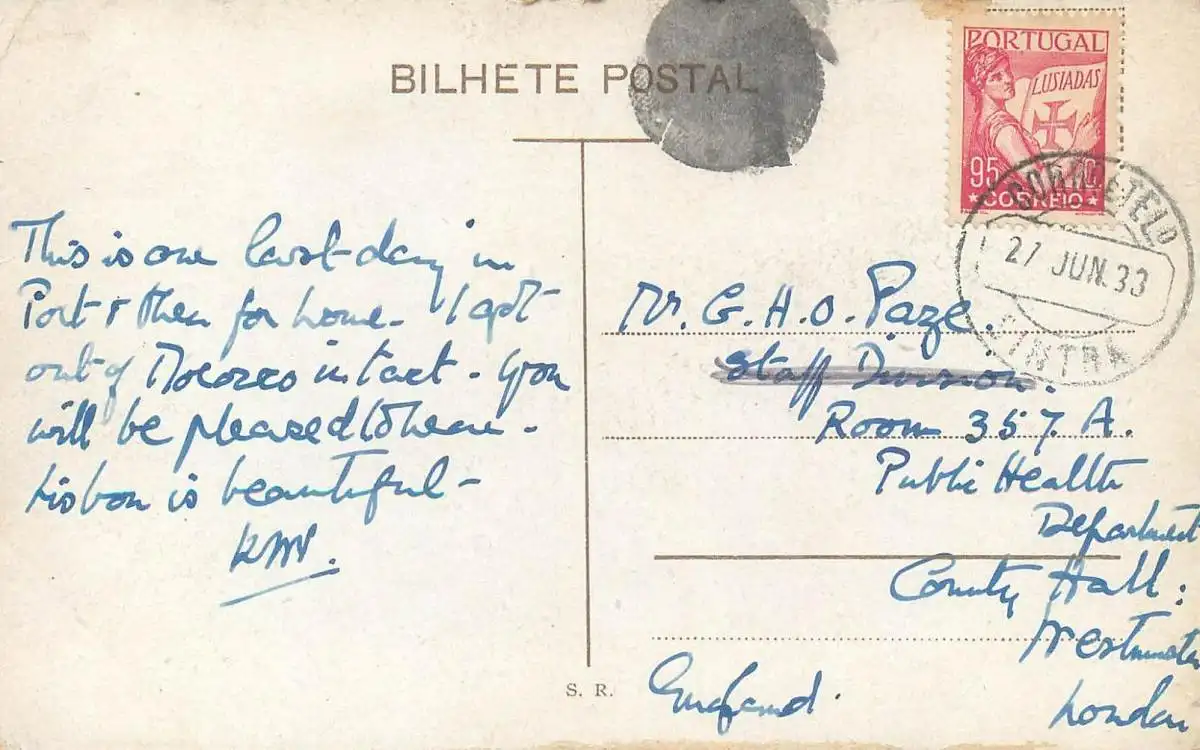 BILHETE POSTAL
PORTUGAL
LUSIADAS
95 C.
CORREIO
27 JUN. 33
SINTRA
This is our last day in
Port & then for home. I got
out of Morocco intact - you
will be pleased to hear -
Lisbon is beautiful -
Mr. G. H. O. Paze.
Staff Division.
Room 357. A.
Public Health
Department
County Hall:
Westminster
London
England.
S. R.